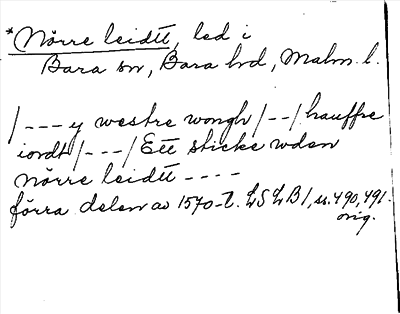 *Nörre leidtt, led i
Bara sn, Bara hd, Malm. l.
/---y westre wongh/--/hauffre
iordt/---/Ett sticke wden
nörre leidtt ----
förra delen av 1570-t. LSLB1, ss. 490, 491.
orig.